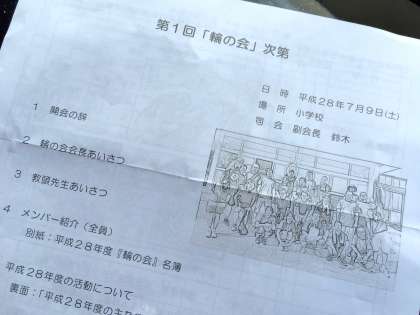 第1回「輪の会」次第
日 時 平成28年7月9日(土)
場 所 小学校
司 会 副会長 鈴木
1 開会の辞
2 輪の会会長あいさつ
3 教頭先生あいさつ
4 メンバー紹介(全員)
別紙:平成28年度『輪の会』名簿
平成28年度の活動について
裏面:「平成28年度の主な